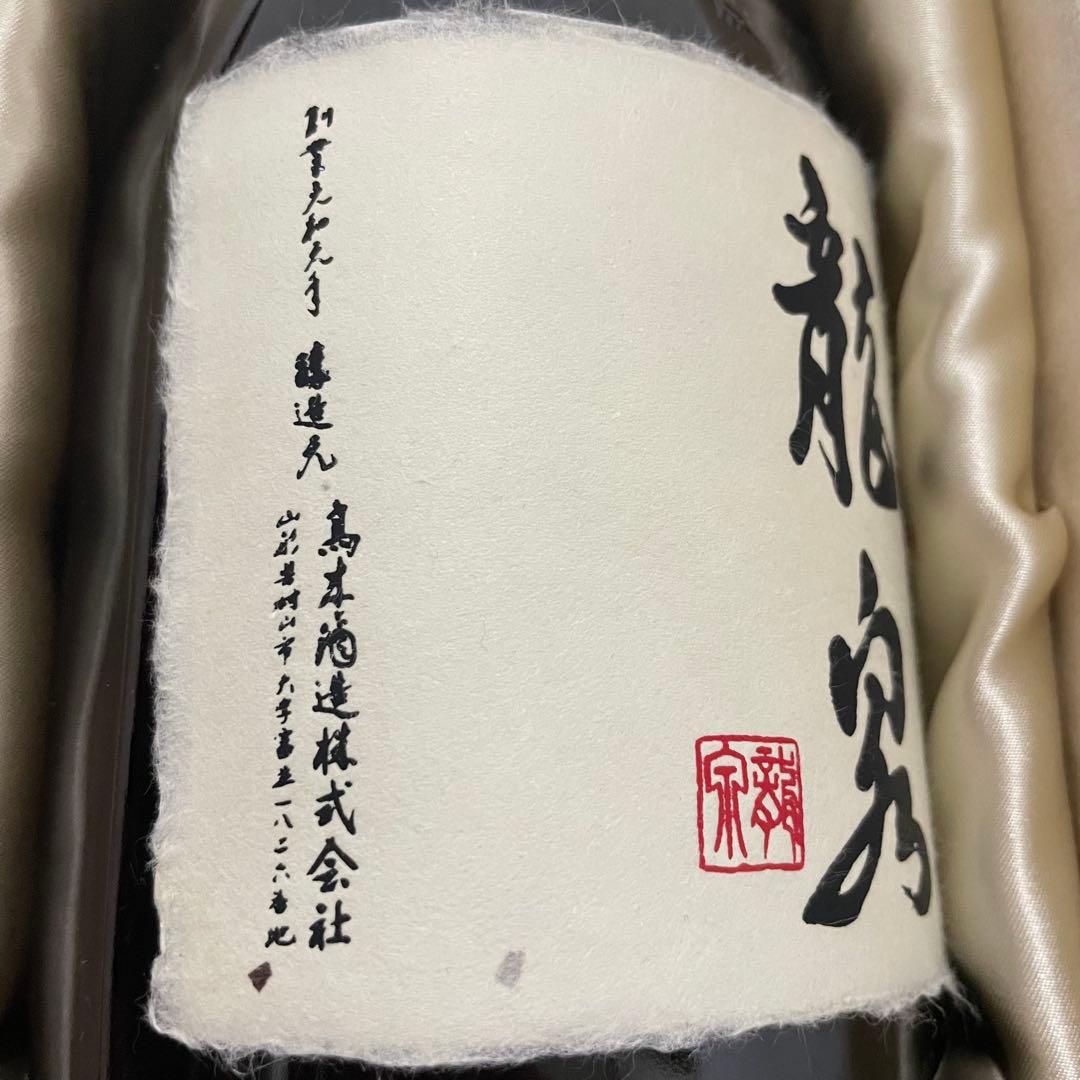 龍泉
龍泉
創業元和元年 醸造元
高木酒造株式会社
山形県村山市大字富並一八二六番地